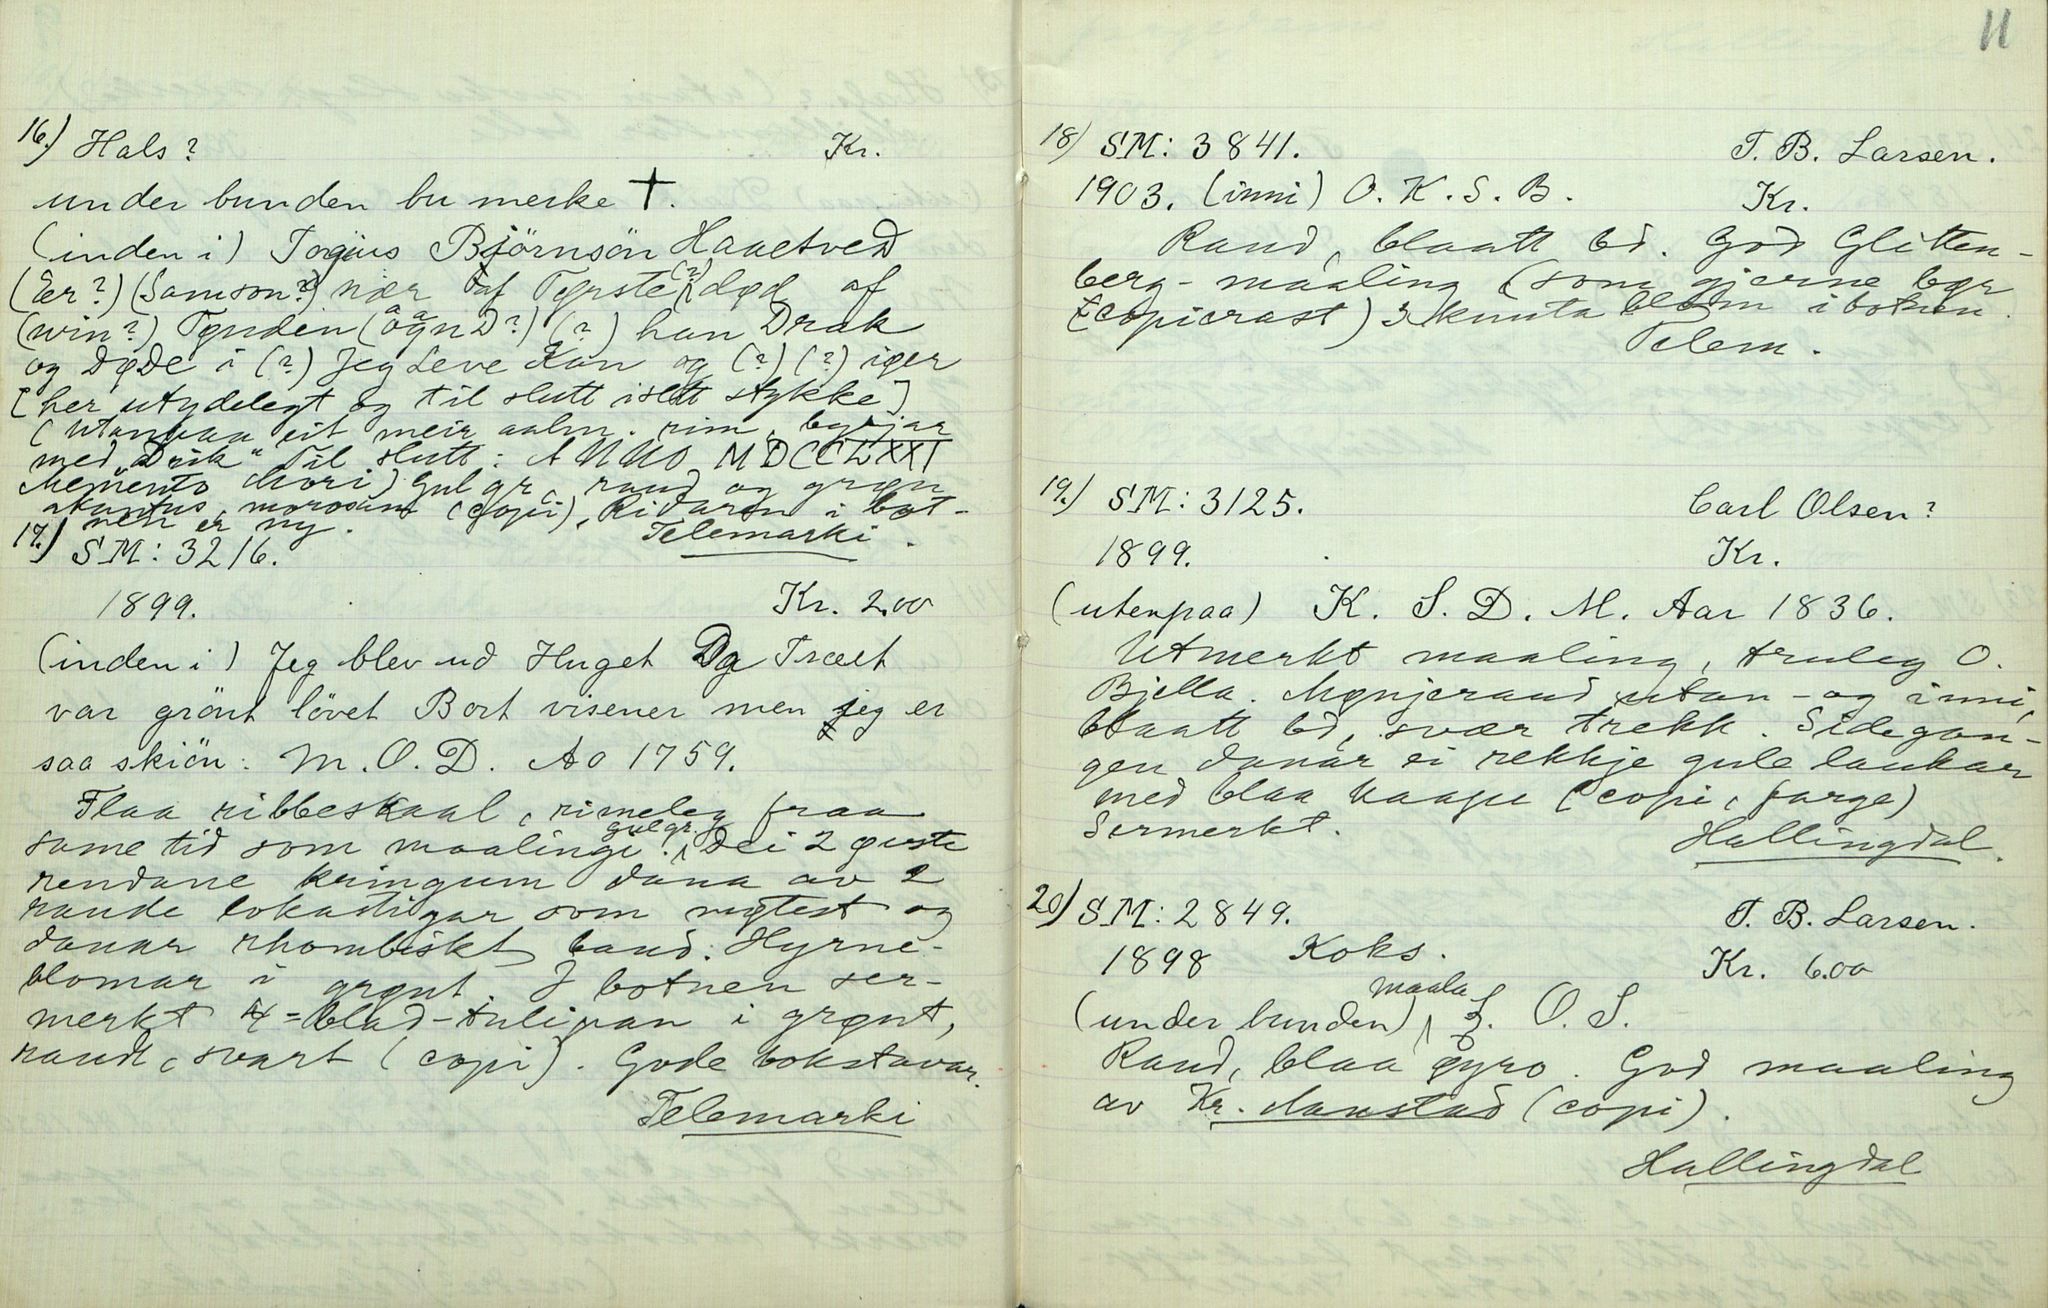 16.) Hals? Kr.
under bunden bu merke †.
(inden i) Togius Björnsön Haaetved
(Er?) (Samson?) nær af Tørste (?) død af
(win?) Tønden (ognD?) (?) han Drak
og DøDe i (?) Jeg Leve Kan og (?) (?) iger
[her utydelegt og til slutt islett stykke]
(utanpaa eit meir aalm. rim, byrjar
med „Drik“ Til slutt: ANNO MDCCLXXI
Memento Mori) Gul gr, raud og grøn
akantus, morosam (copi), Ridaren i bot-
nen er ny. Telemarki.
17.) SM: 3216.
1899. Kr. 2.00
(inden i) Jeg blev ud Huget Dg Træet
var grönt lövet Bort visener men jeg er
saa skiön: M.O.D. Ao 1759.
Flaa ribbeskaal, rimeleg fraa
same tid som maalingi. gul gr. Dei 2 øvste
rendane kringum dana av 2
raude lokastigar som møtest og
danar rhombiskt band. Hyrne-
blomar i grønt. I botnen ser-
merkt 4-blad-tulipan i grønt,
raudt, svart (copi). Gode bokstavar.
Telemarki
11
18) SM: 3841. T. B. Larsen.
1903. (inni) O. K. S. B. Kr.
Raud, blaatt bd. God Glitten-
berg-maaling (som gjerne bør
copierast) 3 knuta blom i botnen.
Telem.
19.) SM: 3125. Carl Olsen?
1899. Kr.
(utenpaa) K. S. D. M. Aar 1836.
Utmerkt maaling, truleg O.
Bjella. Mønjeraud utan- og inni,
blaatt bd, svær trekk. Sidegan-
gen danar ei rekkje gule laukar
med blaa knapp (copi, farge)
Sermerkt. Hallingdal.
20) SM: 2849. T. B. Larsen.
1898 Koks. Kr. 6.00
(under bunden) maala L. O. S.
Raud, blaa gyro. God maaling
av Kr. Aanstad (copi).
Hallingdal